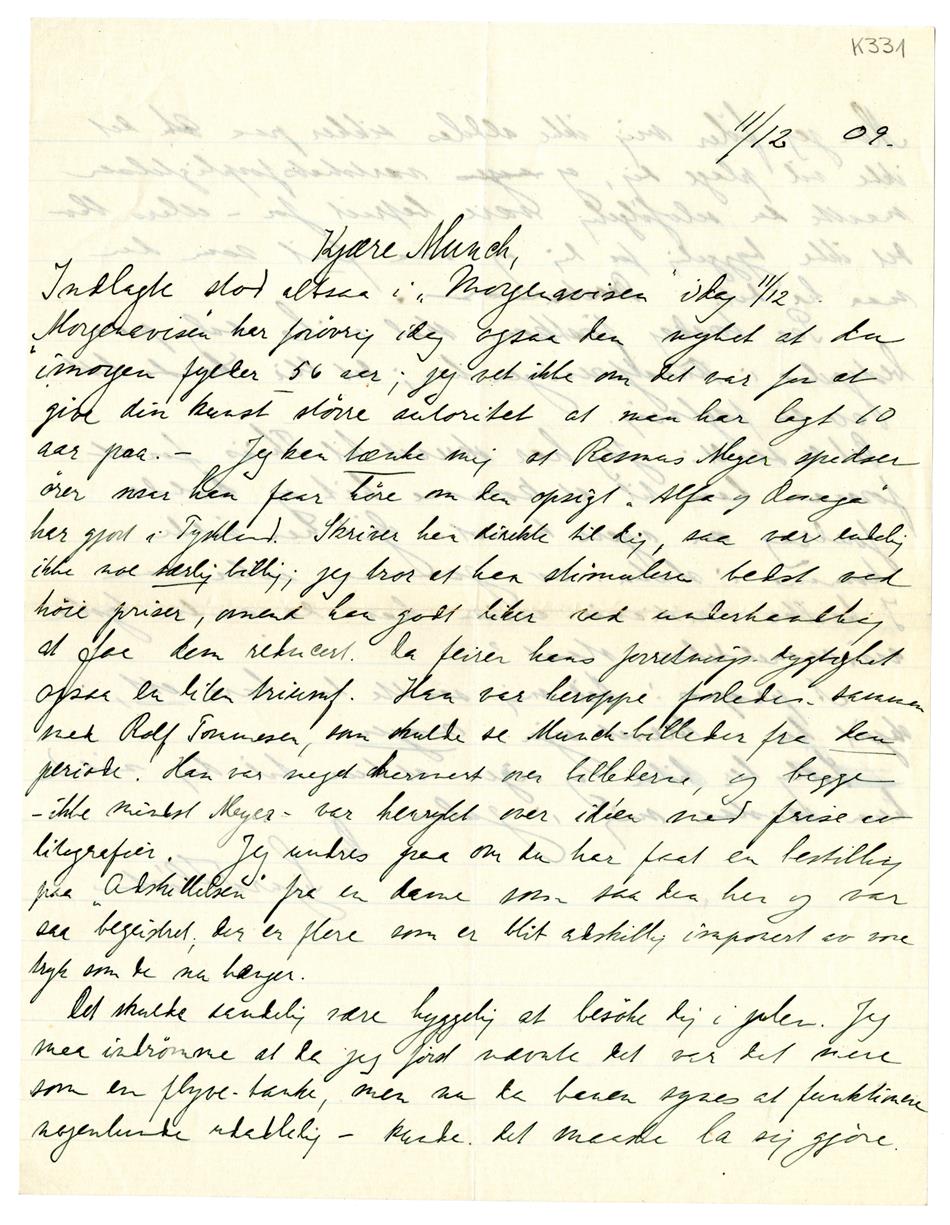 K331
11/12 09.
Kjære Munch,
Indlagte stod altsaa i „Morgenavisen" idag 11/12.
„Morgenavisen" har forøvrig idag ogsaa den nyhet at du
imorgen fylder 56 aar; jeg vet ikke om det var for at
give din kunst större autoritet at man har lagt 10
aar paa. – Jeg kan tænke mig at Rasmus Meyer spidser
ører naar han faar høre om den opsigt „Alfa og Omega"
har gjort i Tyskland. Skriver han direkte til dig, saa vær endelig
ikke noe særlig billig; jeg tror at han stimuleres bedst ved
høie priser, omend han godt liker ved underhandling
at faa dem reducert. Da feirer hans forretnings-dygtighet
ogsaa en liten triumf. Han var heroppe forleden sammen
med Rolf Tommesen, som skulde se Munch-billeder fra den
periode. Han var meget over billederne, og begge
– ikke mindst Meyer – var henrykt over idéen med frise av
litografier. Jeg undres paa om du har faat en bestilling
paa „Adskillelsen" fra en dame som saa den her og var
saa begeistret; der er flere som er blit adskillig imponert av vore
tryk som de nu hænger.
Det skulde sandelig være hyggelig at besöke dig i julen. Jeg
maa indrömme at da jeg först nævnte det var det mere
som en flyve-tanke, men nu da banen synes at funktionere
nogenlunde udadlelig – kunde det maaske la sig gjöre.